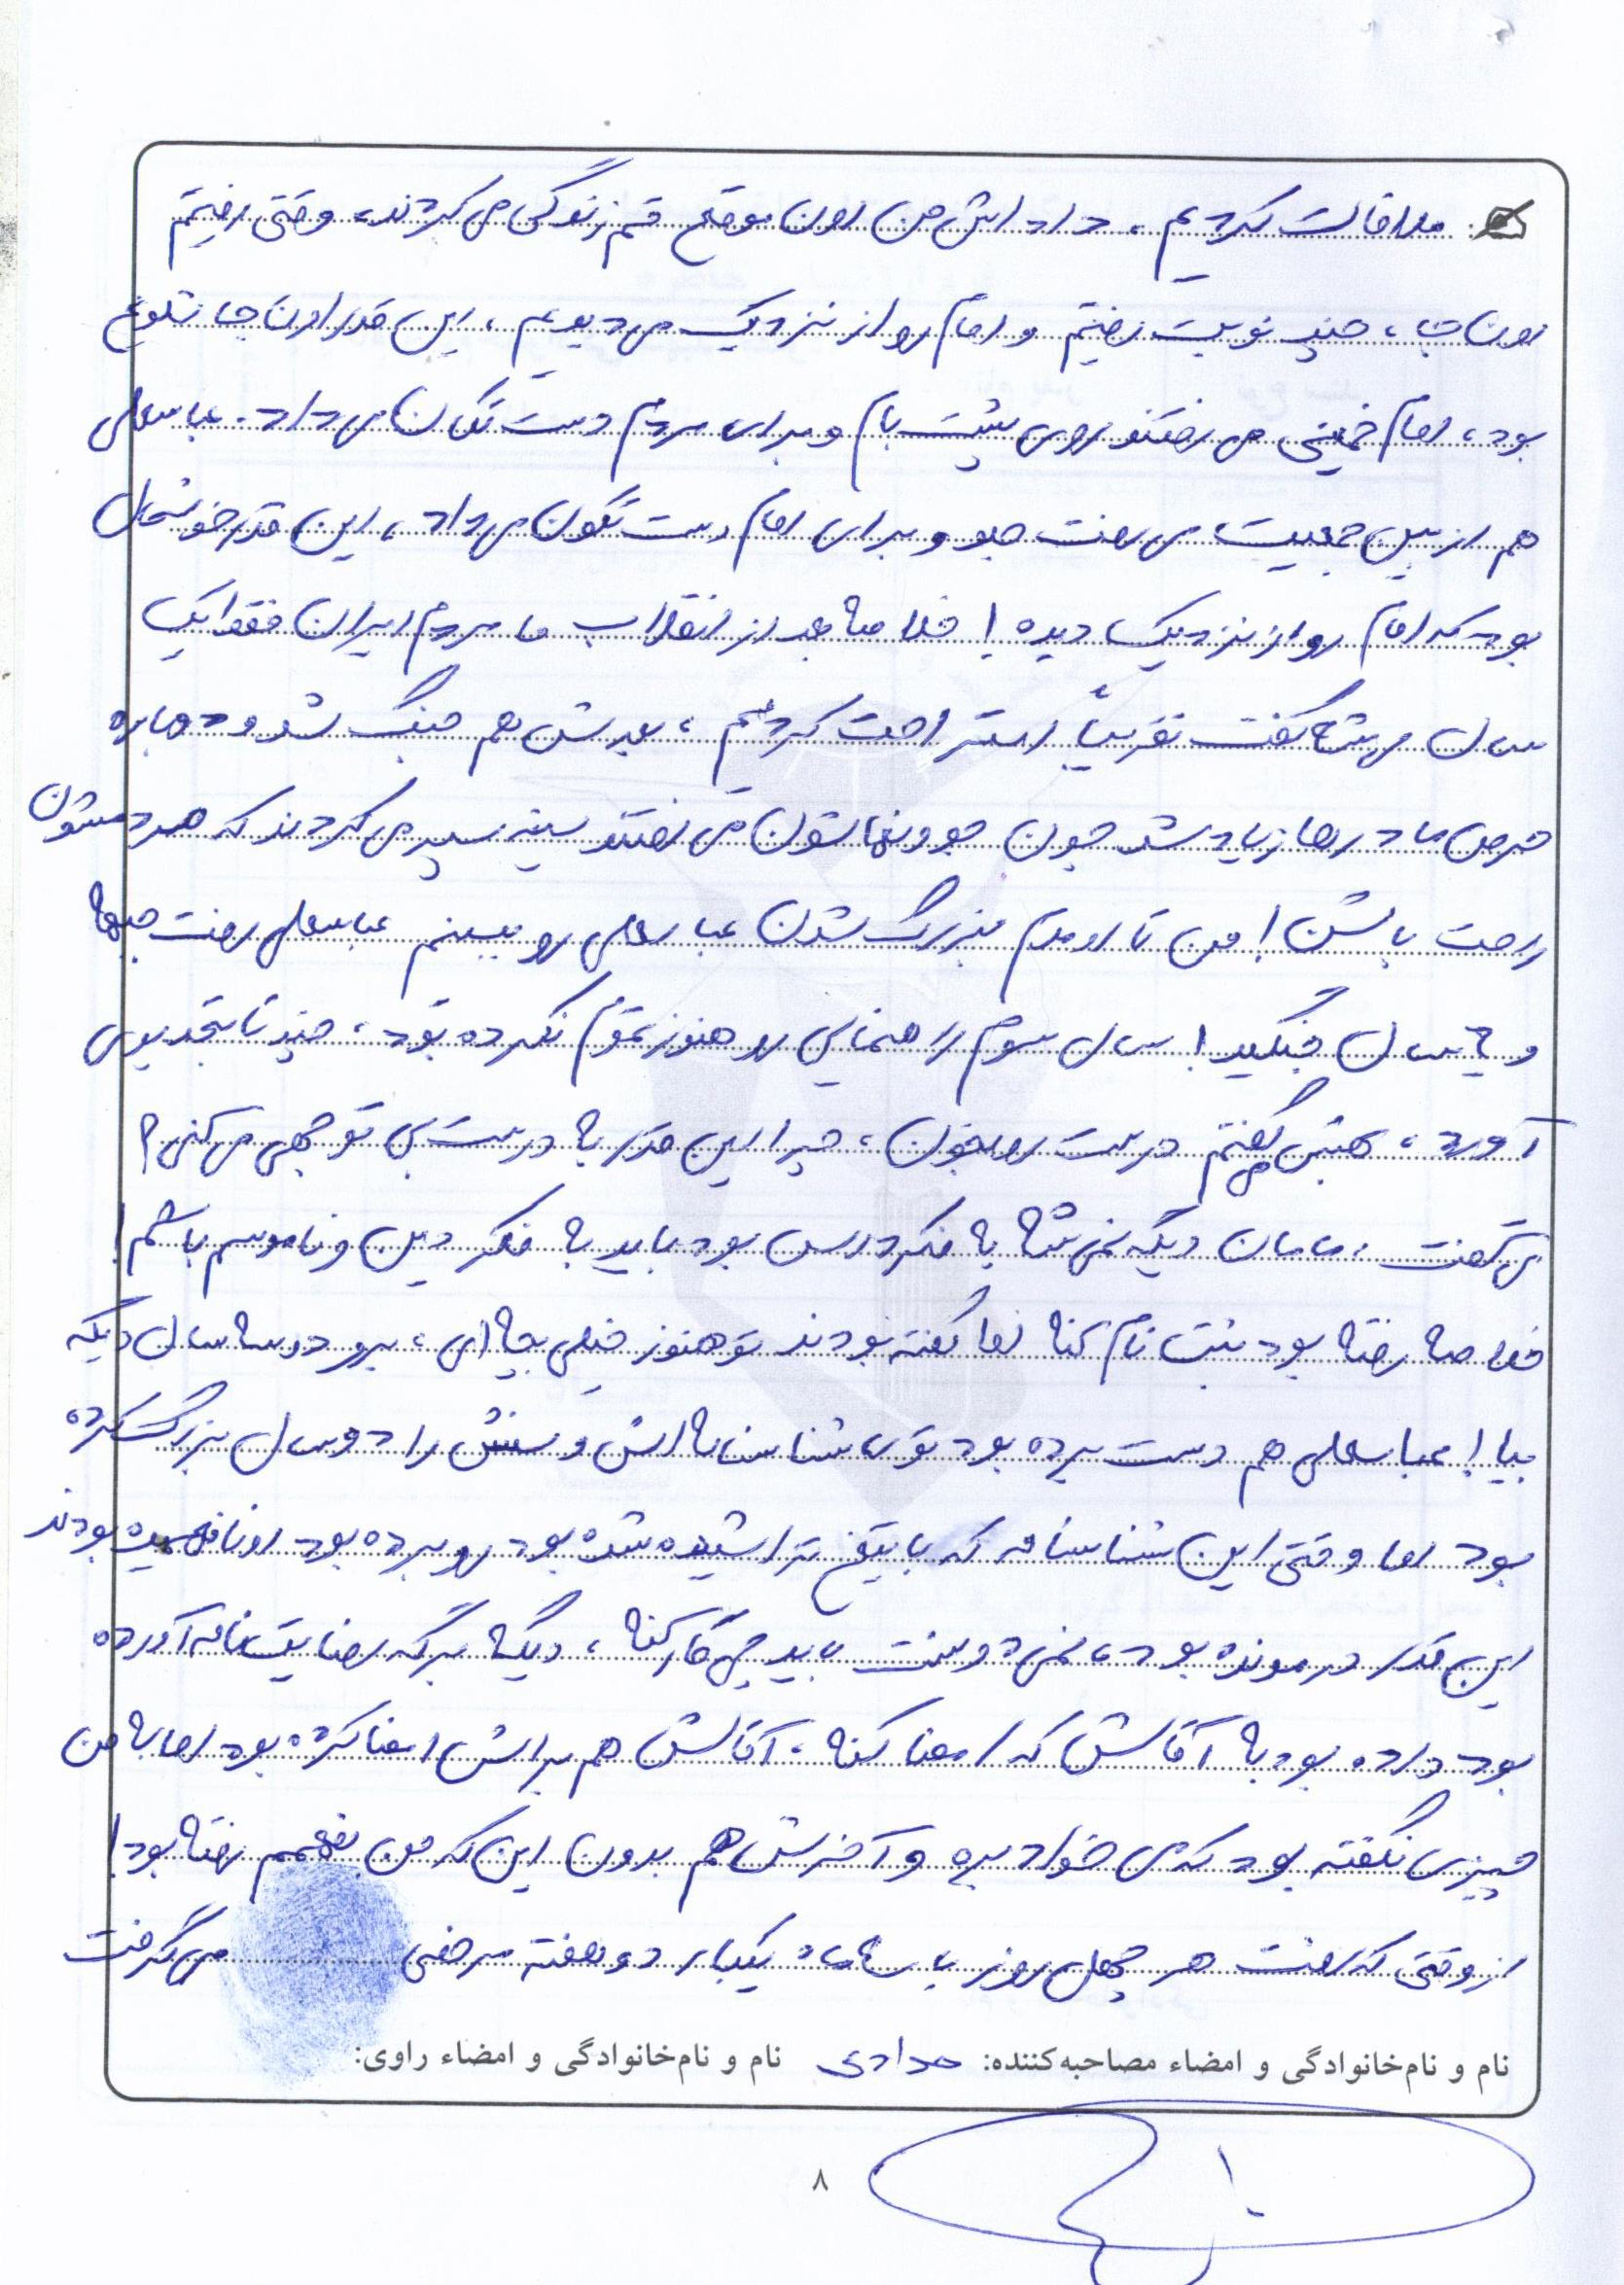 ملاقات کردیم، داداش من اون موقع قم زندگی می‌کردند، وقتی رفتیم
اون جا، چند نوبت رفتیم و امام رو از نزدیک می‌دیدیم، این قدر اون جا شلوغ
بود، امام خمینی می‌رفتند روی پشت بام و برای مردم دست تکان می‌داد. عباسعلی
هم از بین جمعیت می‌رفت جلو و برای امام دست تکون می‌داد، این قدر خوشحال
بود که امام رو از نزدیک دیده! خلاصه بعد از انقلاب ما مردم ایران فقط یک
سال می‌شه گفت تقریباً استراحت کردیم، بعدش هم جنگ شد و دوباره
حرص مادرها زیاد شد چون جوونهاشون می‌رفتند سینه سپر می‌کردند که همه
راحت باشن! من تا اومدم بزرگ شدن عباسعلی رو ببینم عباسعلی رفت جبهه
و سال جنگید! سال سوم راهنمایی رو هنوز تموم نکرده بود، چند تا تجدیدی
آورد، بهش می‌گفتم درست رو بخون، چرا این قدر به درست بی توجهی می‌کنی؟
می‌گفت، مامان دیگه نمی‌شه به فکر درس بود باید به فکر دین و ناموسم باشم!
خلاصه رفته بود ثبت نام کنه اما گفته بودند تو هنوز خیلی بچه‌ای، برو دو سه سال دیگه
بیا! عباسعلی هم دست برده بود توی شناسنامه‌اش و سنش را دو سال بزرگ کرده
بود اما وقتی این شناسنامه که با تیغ تراشیده شده بود رو برده بود اونا فهمیده بودند
این قدر درمونده بود، نمی‌دونست باید چی کار کنه، دیگه برگه رضایت نامه آورده
بود داده بود به آقاش که امضا کنه، آقاش هم براش امضا کرده بود اما به من
چیزی نگفته بود که می‌خواد بره و آخرش هم بدون این که من بفهمم رفته بود!
از وقتی که رفت هر چهل روز یا سه ماه یکبار دو هفته مرخصی می‌گرفت
نام و نام‌خانوادگی و امضاء مصاحبه‌کننده: حدادی نام و نام‌خانوادگی و امضاء راوی:
۸